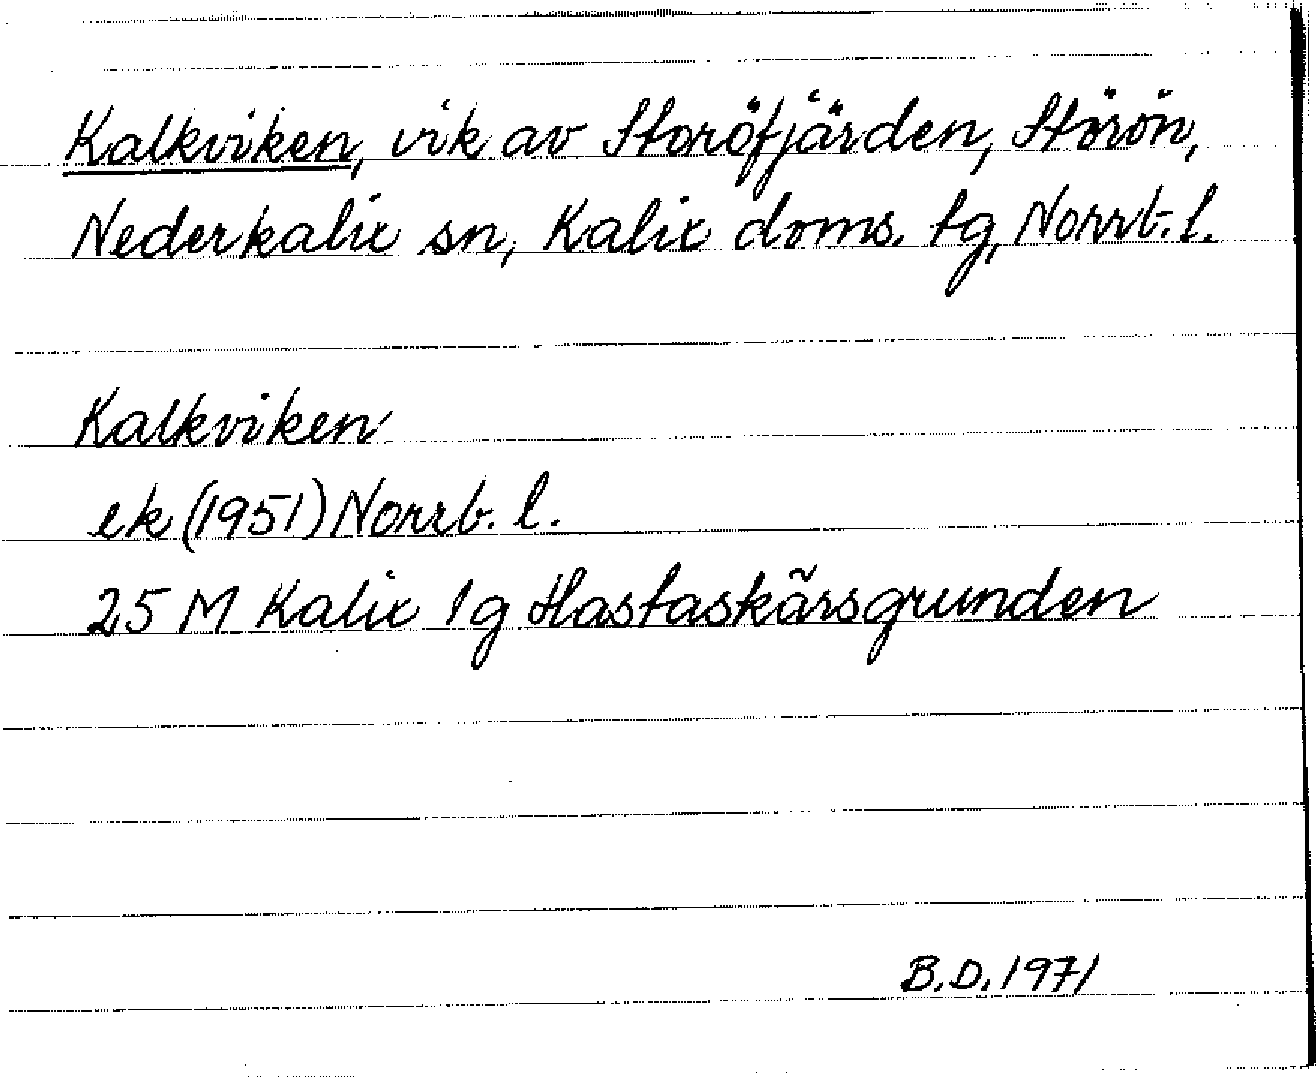 Kalkviken, vik av Storöfjärden, Störön,
Nederkalix sn, Kalix doms. tg, Norrb. l.
Kalkviken
ek (1951) Norrb. l.
25 M Kalix 1g Hastaskärsgrunden
B.D. 1971